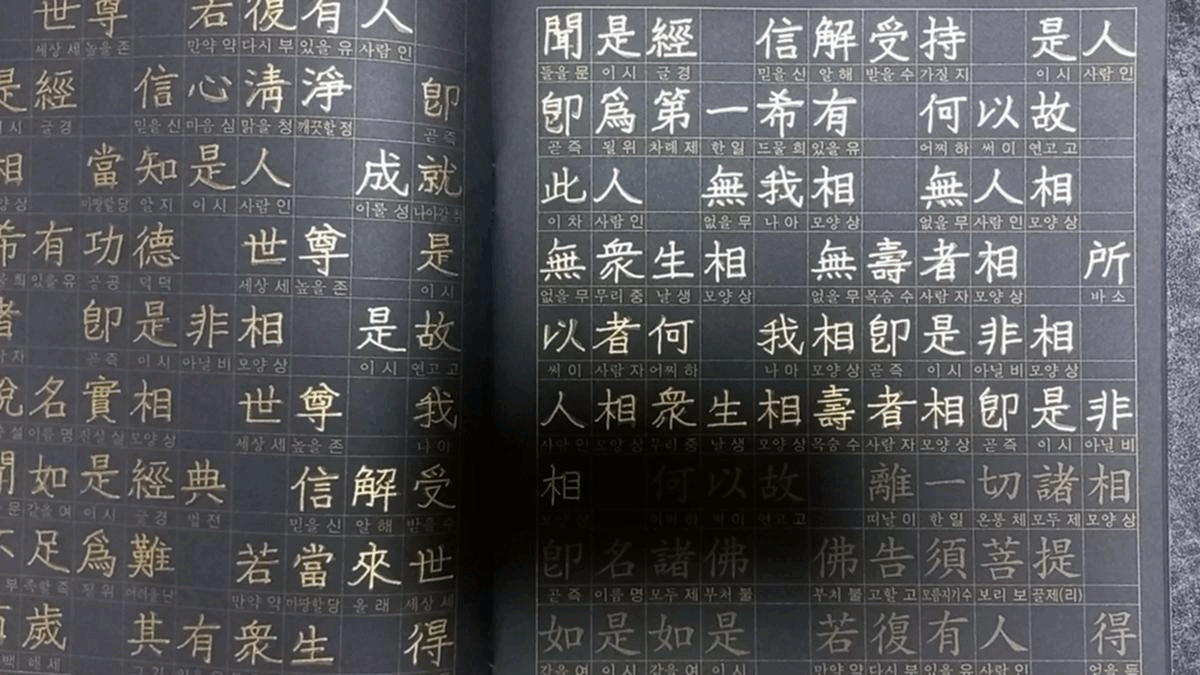 世尊 若復有人
세상 세 높을 존 만약 약 다시 부 있을 유 사람 인
是經 信心清淨 卽
이 시 글 경 믿을 신 마음 심 맑을 청 깨끗할 정 곧 즉
相 當知是人 成就
모양 상 마땅할 당 알 지 이 시 사람 인 이룰 성 나아갈
希有功德 世尊 是
있을 유 공 공 덕 덕 세상 세 높을 존 이 시
者 卽是非相 是故
곧 즉 이 시 아닐 비 모양 상 이 시 연고 고
說名實相 世尊 我
이름 명 진실 실 모양 상 세상 세 높을 존 나 아
聞如是經典 信解受
문 같을 여 이 시 글 경 법 전 믿을 신 알 해 받을 수
不足爲難 若當來世
부 족할 족 될 위 어려울 난 만약 약 마땅할 당 올 래 세상 세
百歲 其有衆生 得
백 해 세
聞是經 信解受持 是人
들을 문 이 시 글 경 믿을 신 알 해 받을 수 가질 지 이 시 사람 인
卽爲第一希有 何以故
곧 즉 될 위 차례 제 한 일 드물 희 있을 유 어찌 하 써 이 연고 고
此人 無我相 無人相
이 차 사람 인 없을 무 나 아 모양 상 없을 무 사람 인 모양 상
無衆生相 無壽者相 所
없을 무 무리 중 날 생 모양 상 없을 무 목숨 수 사람 자 모양 상 바 소
以者何 我相卽是非相
써 이 사람 자 어찌 하 나 아 모양 상 곧 즉 이 시 아닐 비 모양 상
人相衆生相壽者相卽是非
사람 인 모양 상 무리 중 날 생 모양 상 목숨 수 사람 자 모양 상 곧 즉 이 시 아닐 비
相 何以故 離一切諸相
모양 상 어찌 하 써 이 연고 고 떠날 이 한 일 온통 체 모두 제 모양 상
卽名諸佛 佛告須菩提
곧 즉 이름 명 모두 제 부처 불 부처 불 고할 고 모름지기 수 보리 보 끌제(리)
如是如是 若復有人 得
같을 여 이 시 같을 여 이 시 만약 약 다시 부 있을 유 사람 인 얻을 득